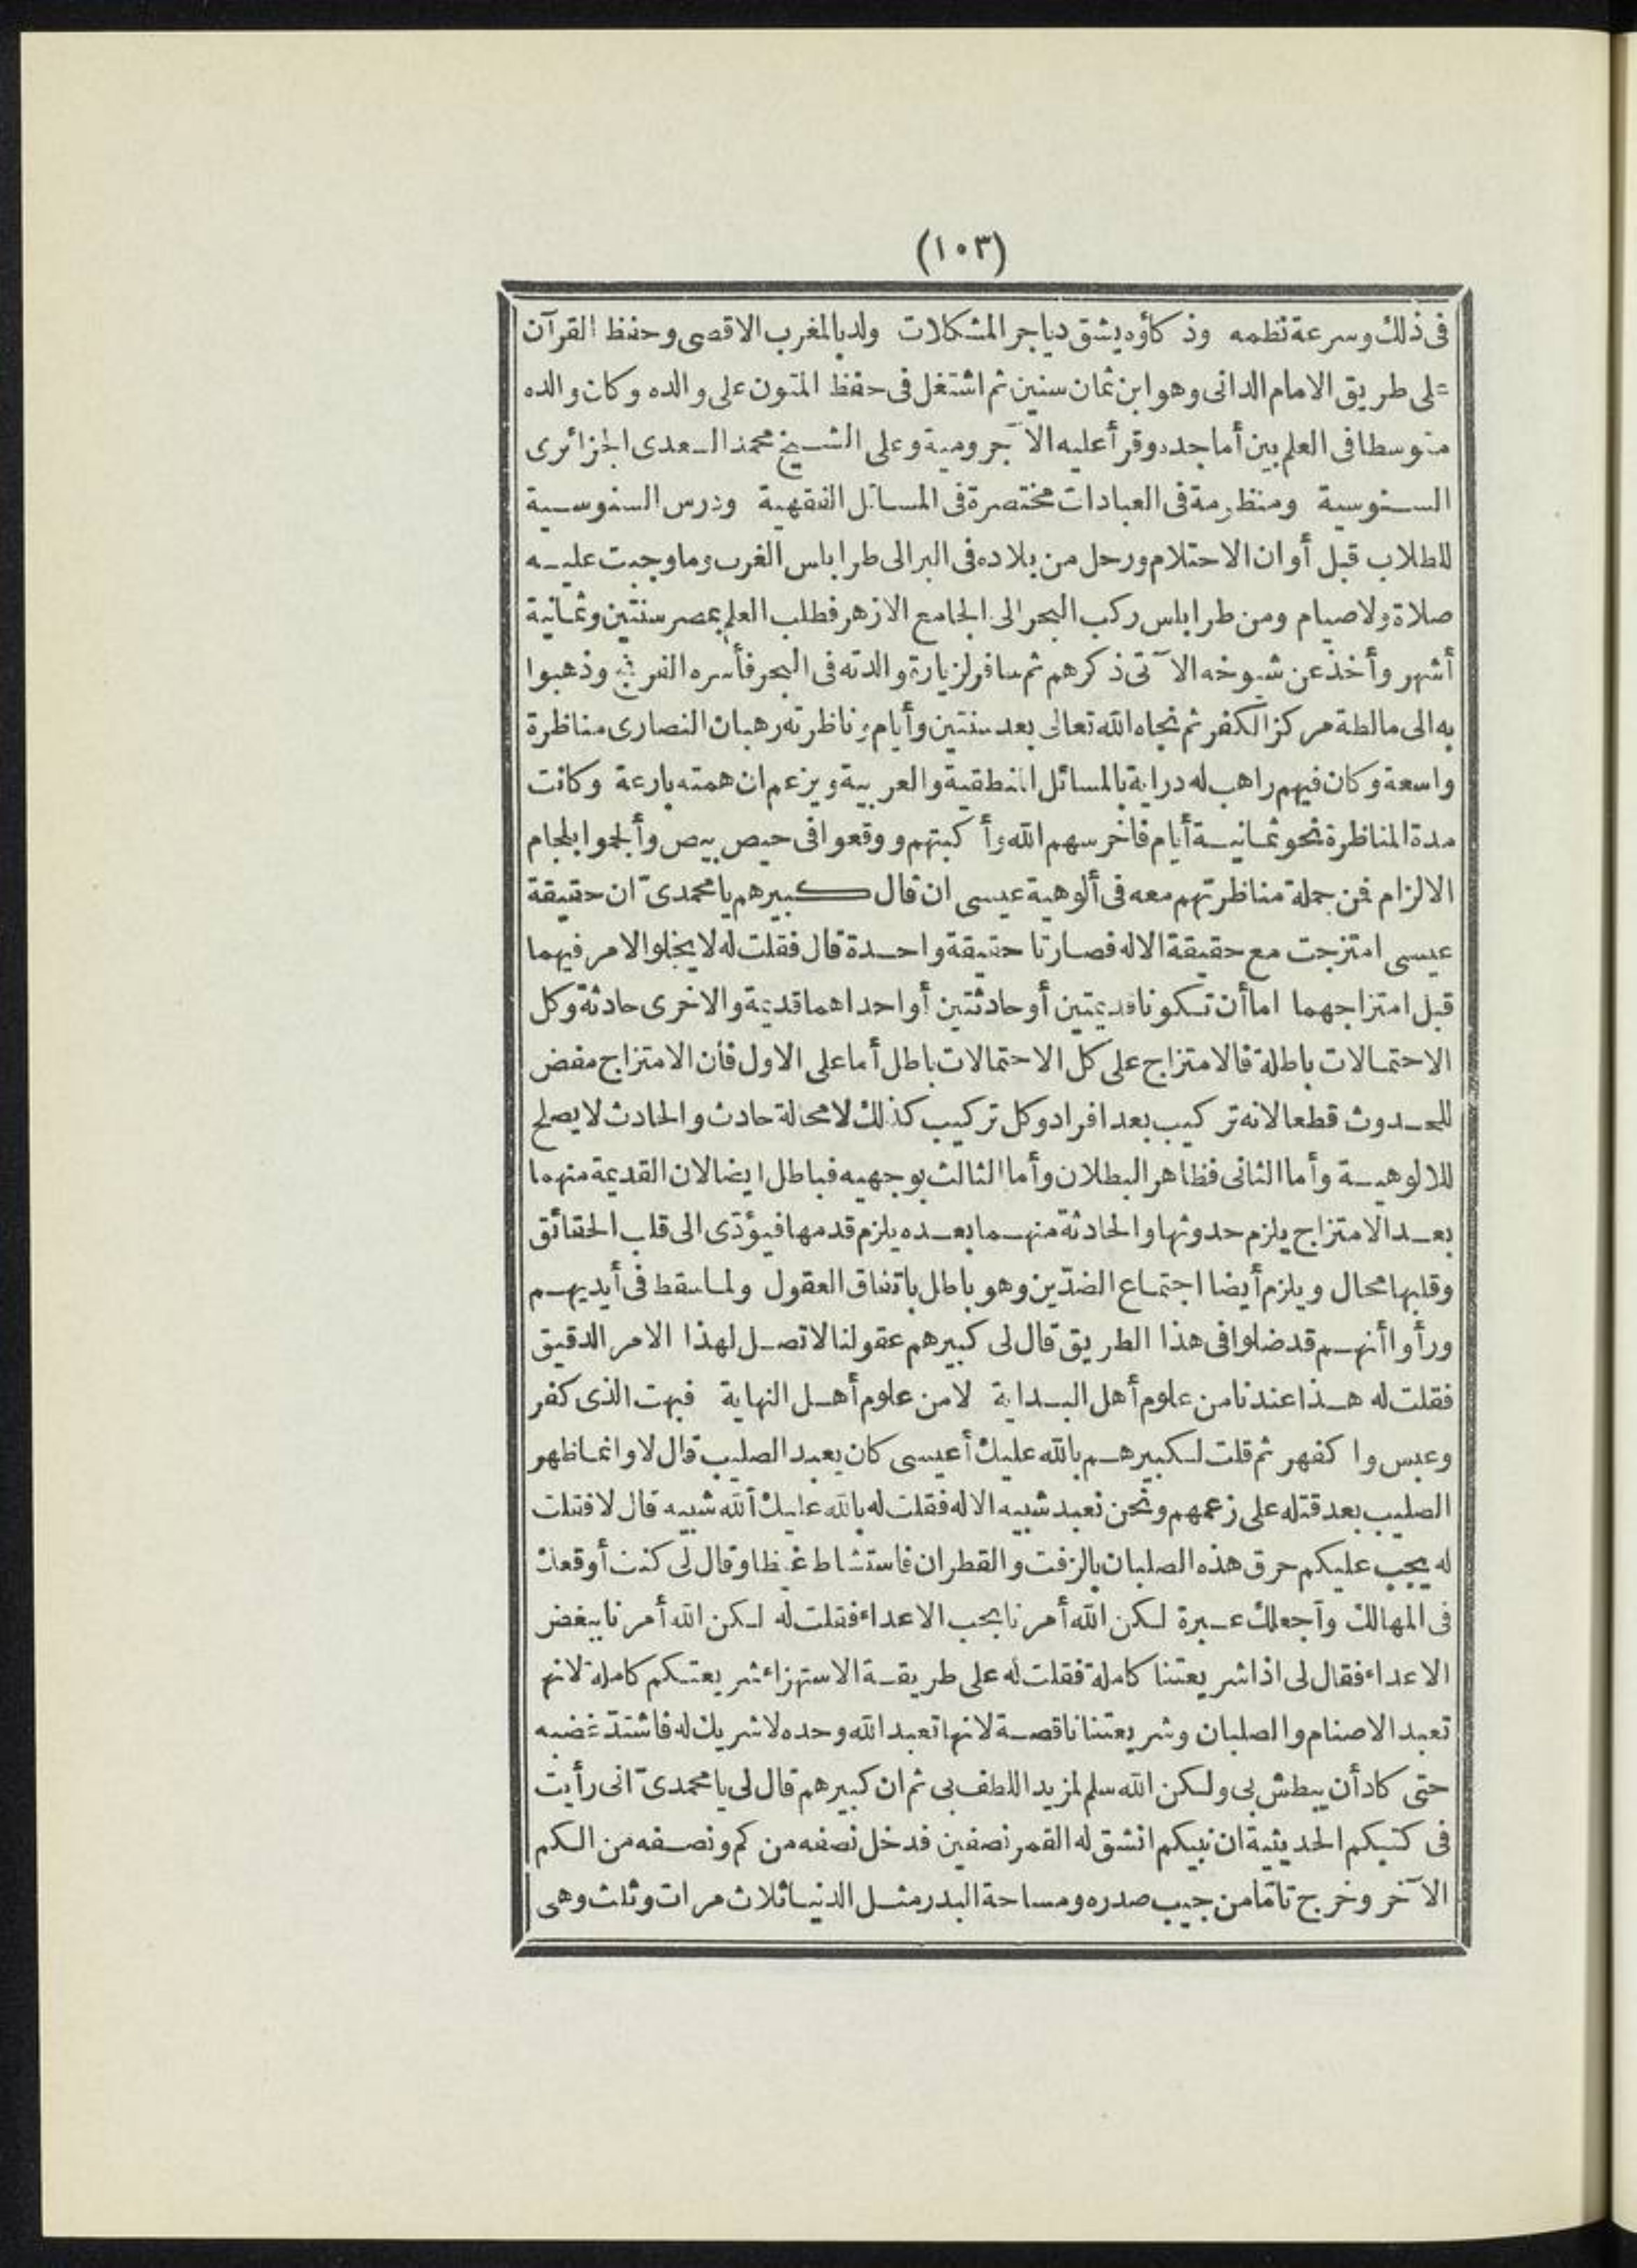 (١٠٣)
فى ذلك وسرعة نظمه وذكاؤه يشق دياجر المشكلات ولد بالمغرب الاقصى وحفظ القرآن
على طريق الامام الدانى وهو ابن ثمان سنين ثم اشتغل فى حفظ المتون على والده وكان والده
متوسطا فى العلم بين أماجده وقرأ عليه الآجرومية وعلى الشيخ محمد السعدى الجزائرى
السنوسية ومنظومة فى العبادات مختصرة فى المسائل الفقهية ودرس السنوسية
للطلاب قبل أوان الاحتلام ورحل من بلاده فى البر الى طرابلس الغرب وما وجبت عليه
صلاة ولا صيام ومن طرابلس ركب البحر الى الجامع الازهر فطلب العلم بمصر سنتين وثمانية
أشهر وأخذ عن شيوخه الآتى ذكرهم ثم سافر لزيارة والدته فى البحر فأسره الفرنج وذهبوا
به الى مالطة مركز الكفر ثم نجاه الله تعالى بعد سنتين وأيام وناظرته رهبان النصارى مناظرة
واسعة وكان فيهم راهب له دراية بالمسائل المنطقية والعربية ويزعم ان همته بارعة وكانت
مدة المناظرة نحو ثمانية أيام فاخرسهم الله وأكبتهم ووقعوا فى حيص بيص وألجموا بلجام
الالزام فمن جملة مناظرتهم معه فى ألوهية عيسى ان قال كبيرهم يا محمدىّ ان حقيقة
عيسى امتزجت مع حقيقة الاله فصارتا حقيقة واحدة قال فقلت له لا يخلو الامر فيهما
قبل امتزاجهما اما أن تكونا قديمتين أو حادثتين أو احداهما قديمة والاخرى حادثة وكل
الاحتمالات باطلة فالامتزاج على كل الاحتمالات باطل أما على الاول فان الامتزاج مفض
للحدوث قطعا لانه تركيب بعد افراد وكل تركيب كذلك لا محالة حادث والحادث لا يصلح
للالوهية وأما الثانى فظاهر البطلان وأما الثالث بوجهيه فباطل ايضا لان القديمة منهما
بعد الامتزاج يلزم حدوثها والحادثة منهما بعده يلزم قدمها فيؤدّى الى قلب الحقائق
وقلبها محال ويلزم أيضا اجتماع الضدّين وهو باطل باتفاق العقول ولما سقط فى أيديهم
ورأوا أنهم قد ضلوا فى هذا الطريق قال لى كبيرهم عقولنا لا تصل لهذا الامر الدقيق
فقلت له هذا عندنا من علوم أهل البداية لا من علوم أهل النهاية فبهت الذى كفر
وعبس واكفهر ثم قلت لكبيرهم بالله عليك أعيسى كان يعبد الصليب قال لا وانما ظهر
الصليب بعد قتله على زعمهم ونحن نعبد شبيه الاله فقلت له بالله عليك ألله شبيه قال لا فقلت
له يجب عليكم حرق هذه الصلبان بالزفت والقطران فاستشاط غيظا وقال لى كنت أوقعك
فى المهالك وأجعلك عبرة لكن الله أمرنا بحب الاعداء فقلت له لكن الله أمرنا ببغض
الاعداء فقال لى اذا شريعتنا كاملة فقلت له على طريقة الاستهزاء شريعتكم كاملة لانها
تعبد الاصنام والصلبان وشريعتنا ناقصة لانها تعبد الله وحده لا شريك له فاشتدّ غضبه
حتى كاد أن يبطش بى ولكن الله سلم لمزيد اللطف بى ثم ان كبيرهم قال لى يا محمدىّ انى رأيت
فى كتبكم الحديثية ان نبيكم انشق له القمر نصفين فدخل نصفه من كم ونصفه من الكم
الآخر وخرج تامّا من جيب صدره ومساحة البدر مثل الدنيا ثلاث مرات وثلث وهى